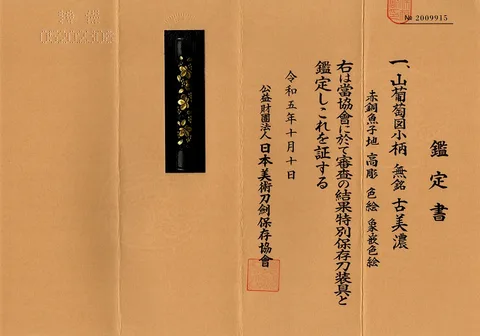 № 2009915
鑑定書
一、山葡萄図小柄 無銘 古美濃
赤銅魚子地 高彫 色絵 象嵌色絵
右は當協會に於て審査の結果特別保存刀装具と
鑑定しこれを証する
令和五年十月十日
公益財團法人 日本美術刀劍保存協會